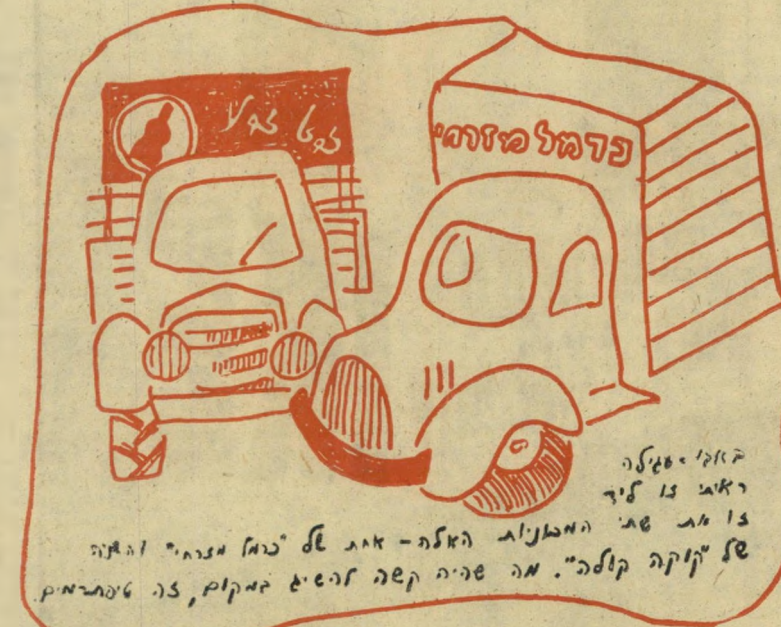 כרמל מזרחי
באבו-עגילה
ראיתי זו ליד
זו את שתי המכוניות האלה – אחת של "כרמל מזרחי" והשניה
של "קוקה קולה". מה שהיה קשה להשיג במקום, זה טיפת-מים.